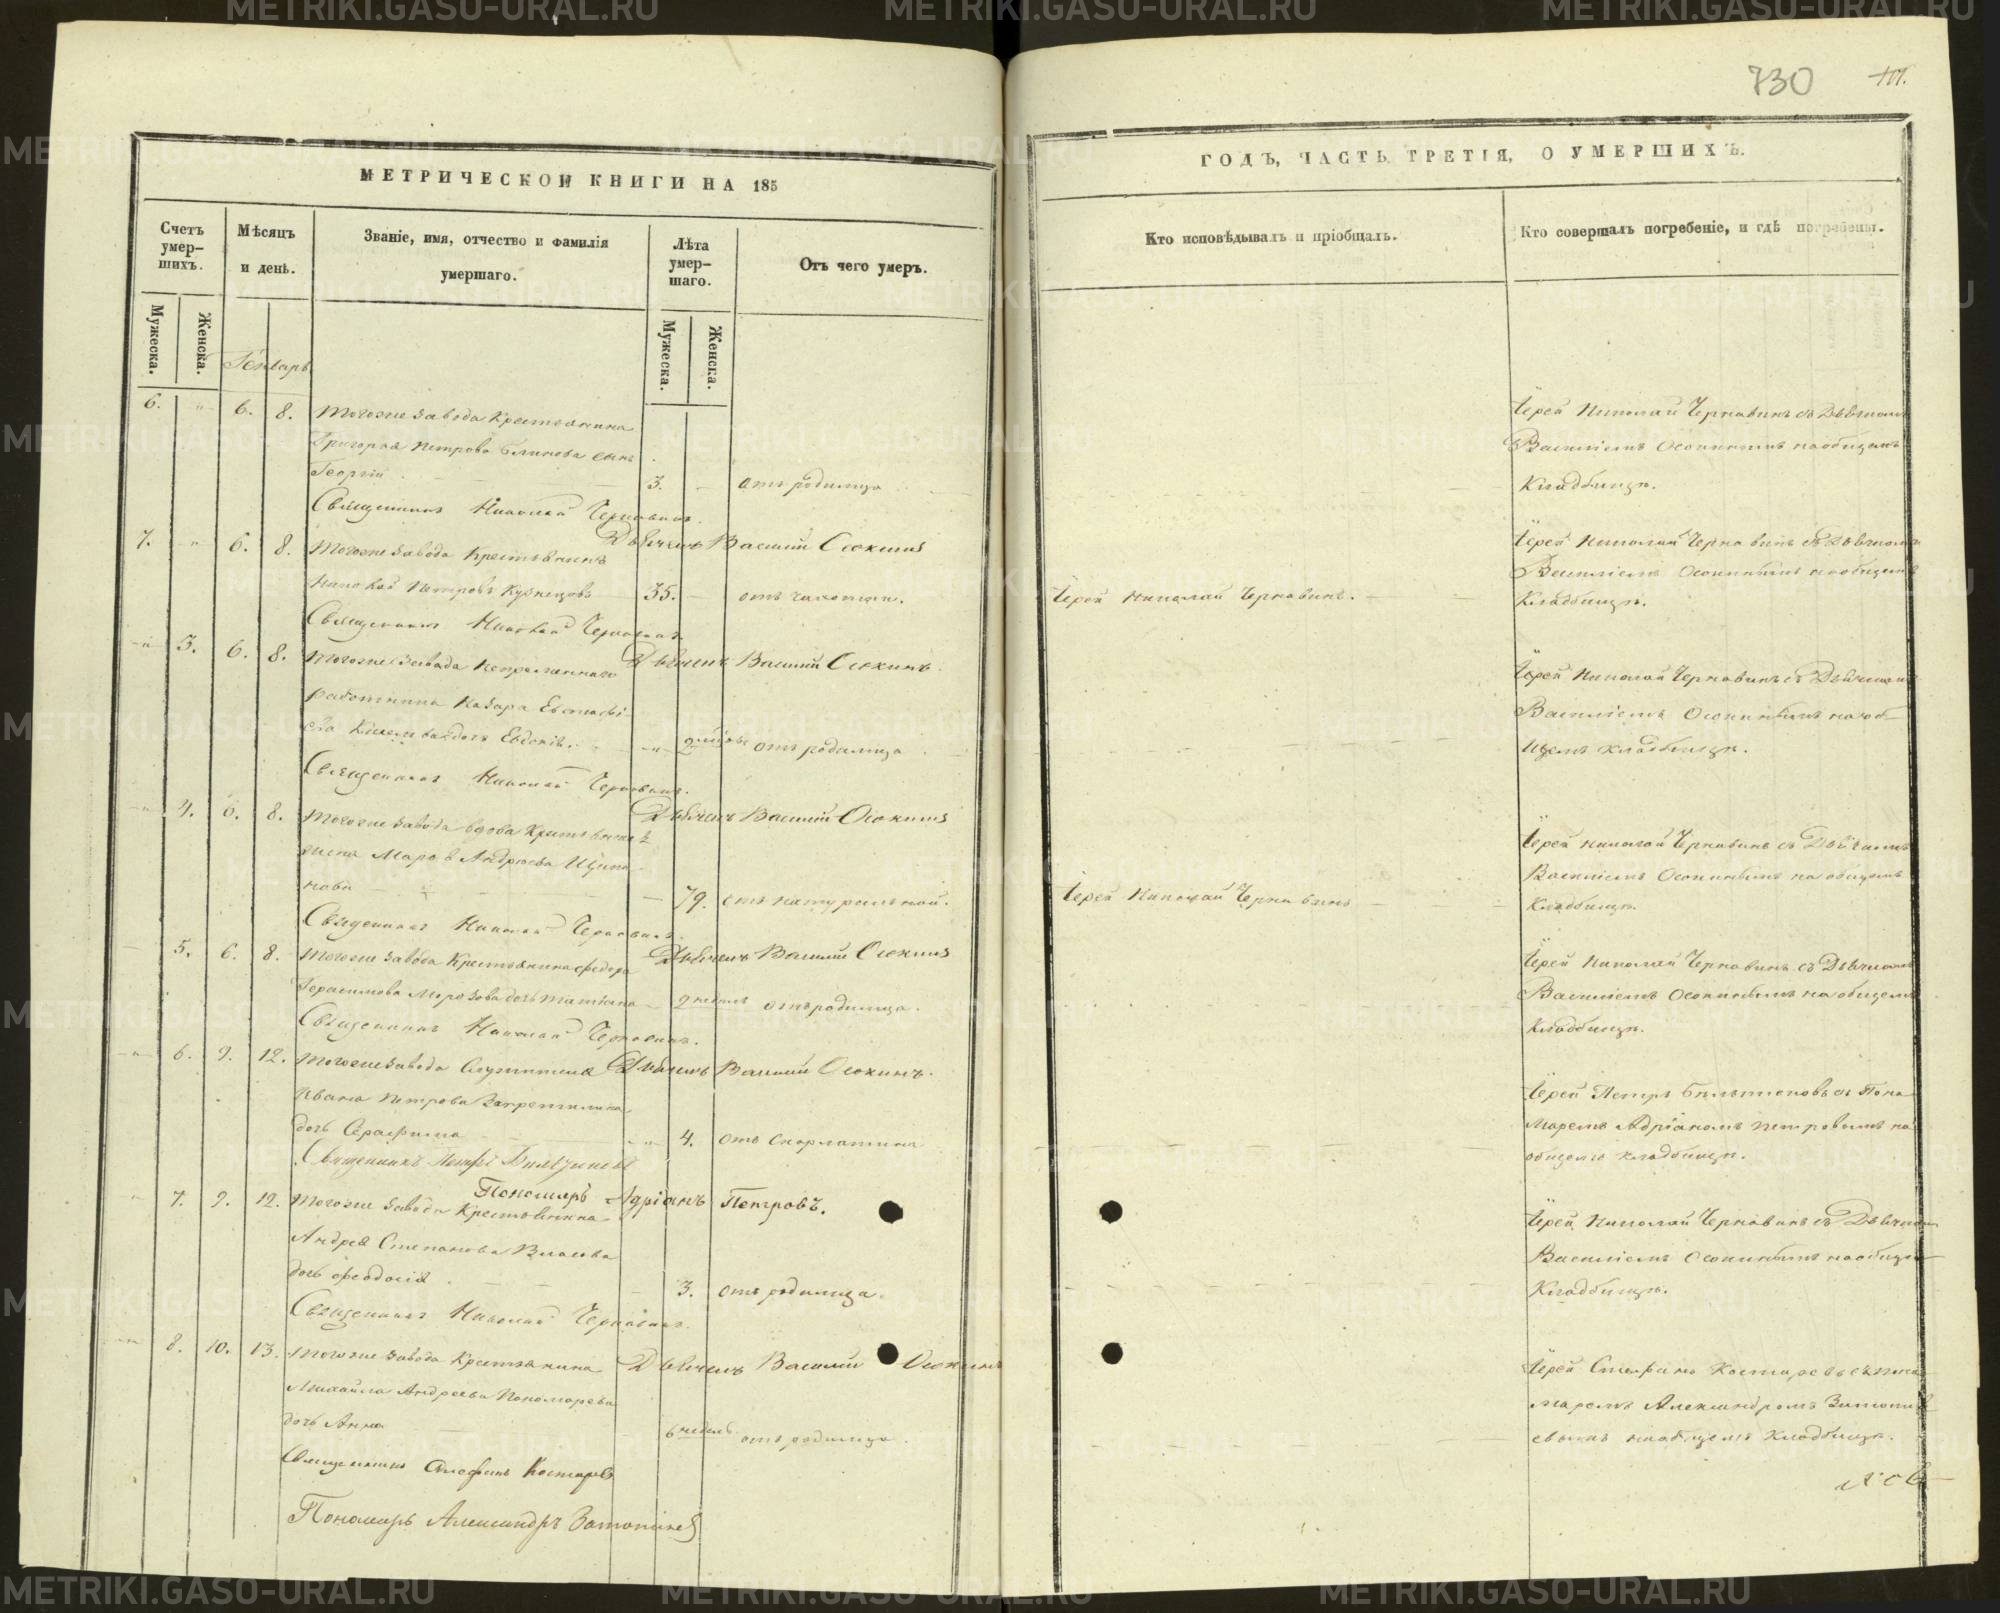 730
МЕТРИЧЕСКОЙ КНИГИ НА 185
ГОДЪ, ЧАСТЬ ТРЕТІЯ, О УМЕРШИХЪ.
Счетъ умер-
шихъ.
Мѣсяцъ
и день.
Званіе, имя, отчество и фамилія
умершаго.
Лѣта
умер-
шаго.
Отъ чего умеръ.
Кто исповѣдывалъ и пріобщалъ.
Кто совершалъ погребеніе, и гдѣ погребены.
Мужеска.
Женска.
Мужеска.
Женска.
Генварь
6. " 6. 8. Тогоже завода Крестьянина
Григорья Петрова Блинова сынъ
Георгій 3. - отъ родимца
Іерей Николай Чернавинъ съ Дьячкомъ
Василіемъ Осокинымъ на общемъ
Кладбищѣ.
Священникъ Николай Чернавинъ.
Дьячекъ Василій Осокинъ
7. " 6. 8. Тогоже завода Крестьянинъ
Николай Петровъ Кузнецовъ 35. - отъ чахотки.
Іерей Николай Чернавинъ.
Іерей Николай Чернавинъ съ Дьячкомъ
Василіемъ Осокинымъ на общемъ
Кладбищѣ.
Священникъ Николай Чернавинъ
Дьячекъ Василій Осокинъ.
" 3. 6. 8. Тогоже завода Непремѣннаго
работника Назара Евстафі-
ева дочь Евдокія. " отъ родимца
Іерей Николай Чернавинъ съ Дьячкомъ
Василіемъ Осокинымъ на об-
щемъ кладбищѣ.
Священникъ Николай Чернавинъ.
Дьячекъ Василій Осокинъ
" 4. 6. 8. Тогоже завода вдова Крестьянская
жена Андреева
нова - 79. отъ натуральной.
Іерей Николай Чернавинъ
Іерей Николай Чернавинъ съ Дьячкомъ
Василіемъ Осокинымъ на общемъ
Кладбищѣ.
Священникъ Николай Чернавинъ.
Дьячекъ Василій Осокинъ
5. 6. 8. Тогоже завода Крестьянина Федора
Герасимова Морозова дочь Татіана - 2 недѣль отъ родимца.
Іерей Николай Чернавинъ съ Дьячкомъ
Василіемъ Осокинымъ на общемъ
Кладбищѣ.
Священникъ Николай Чернавинъ.
Дьячекъ Василій Осокинъ.
" 6. 9. 12. Тогоже завода Служителя
Ивана Петрова
дочь Серафима " 4. отъ скарлатины
Іерей Петръ съ Поно-
маремъ Адріаномъ Петровымъ на
общемъ кладбищѣ.
Священникъ Петръ
Пономарь Адріанъ Петровъ.
" 7. 9. 12. Тогоже завода Крестьянина
Андрея Степанова Власова
дочь Феодосія - 3. отъ родимца.
Іерей Николай Чернавинъ съ Дьячкомъ
Василіемъ Осокинымъ на общемъ
Кладбищѣ.
Священникъ Николай Чернавинъ.
Дьячекъ Василій Осокинъ
" 8. 10. 13. Тогоже завода Крестьянина
Михайла Андреева Пономарева
дочь Анна 6 недѣль. отъ родимца.
Іерей Стефанъ Костаревъ съ поно-
маремъ Александромъ Затопля-
евымъ на общемъ Кладбищѣ.
Священникъ Стефанъ Костаревъ
Пономарь Александръ Затопляевъ
METRIKI.GASO-URAL.RU